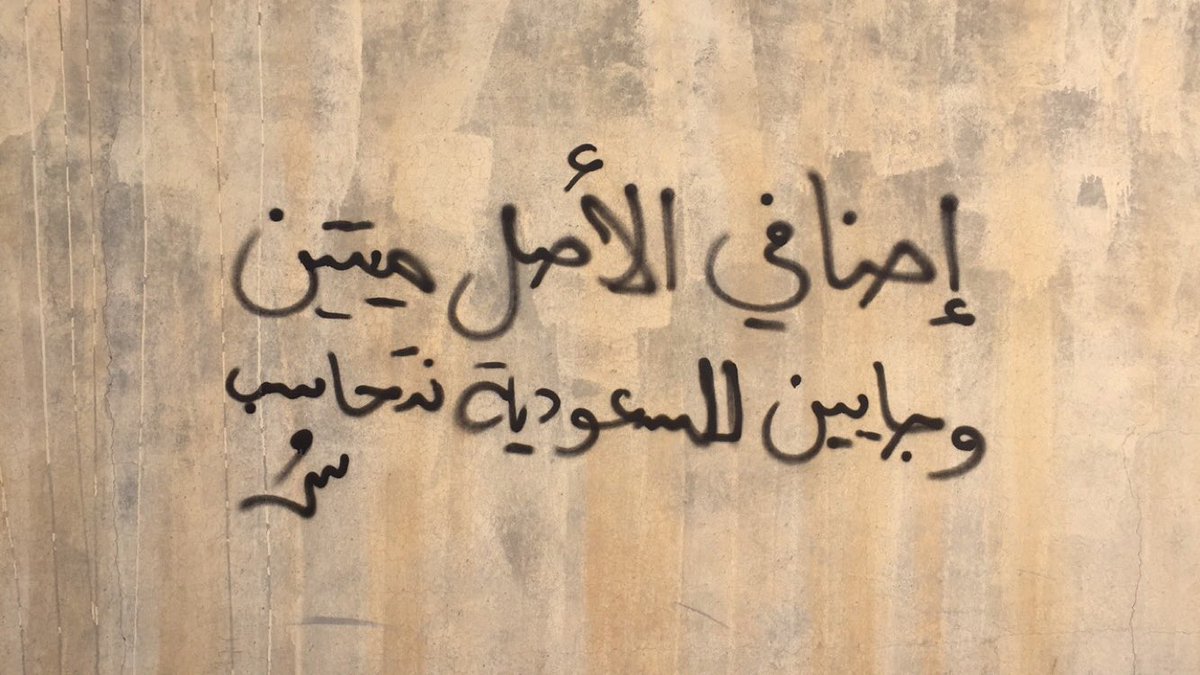 إحنا في الأصل ميتين
وجايين للسعودية نتحاسب